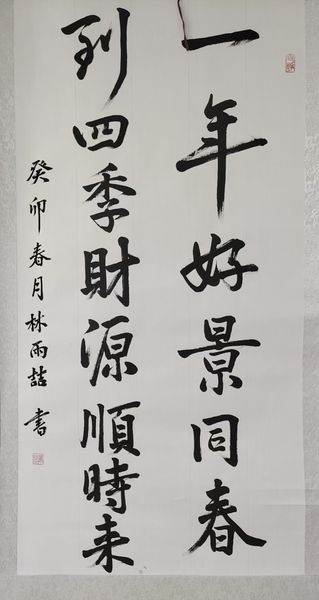 一年好景同春
到四季財源順時来
癸卯春月林雨喆書